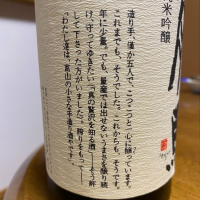 米吟醸
造り手、僅か五人で、こつこつと心で醸っています。
これまでも、そうでした。これからも、そうです。
年に少量、でも、量産では出せないうまさを醸り続
け、守ってゆきたい「真の贅沢を知る酒」――そう評
して下さった方がいました。誇りです。
「わたし達は、富山の小さな手造り酒やです。」